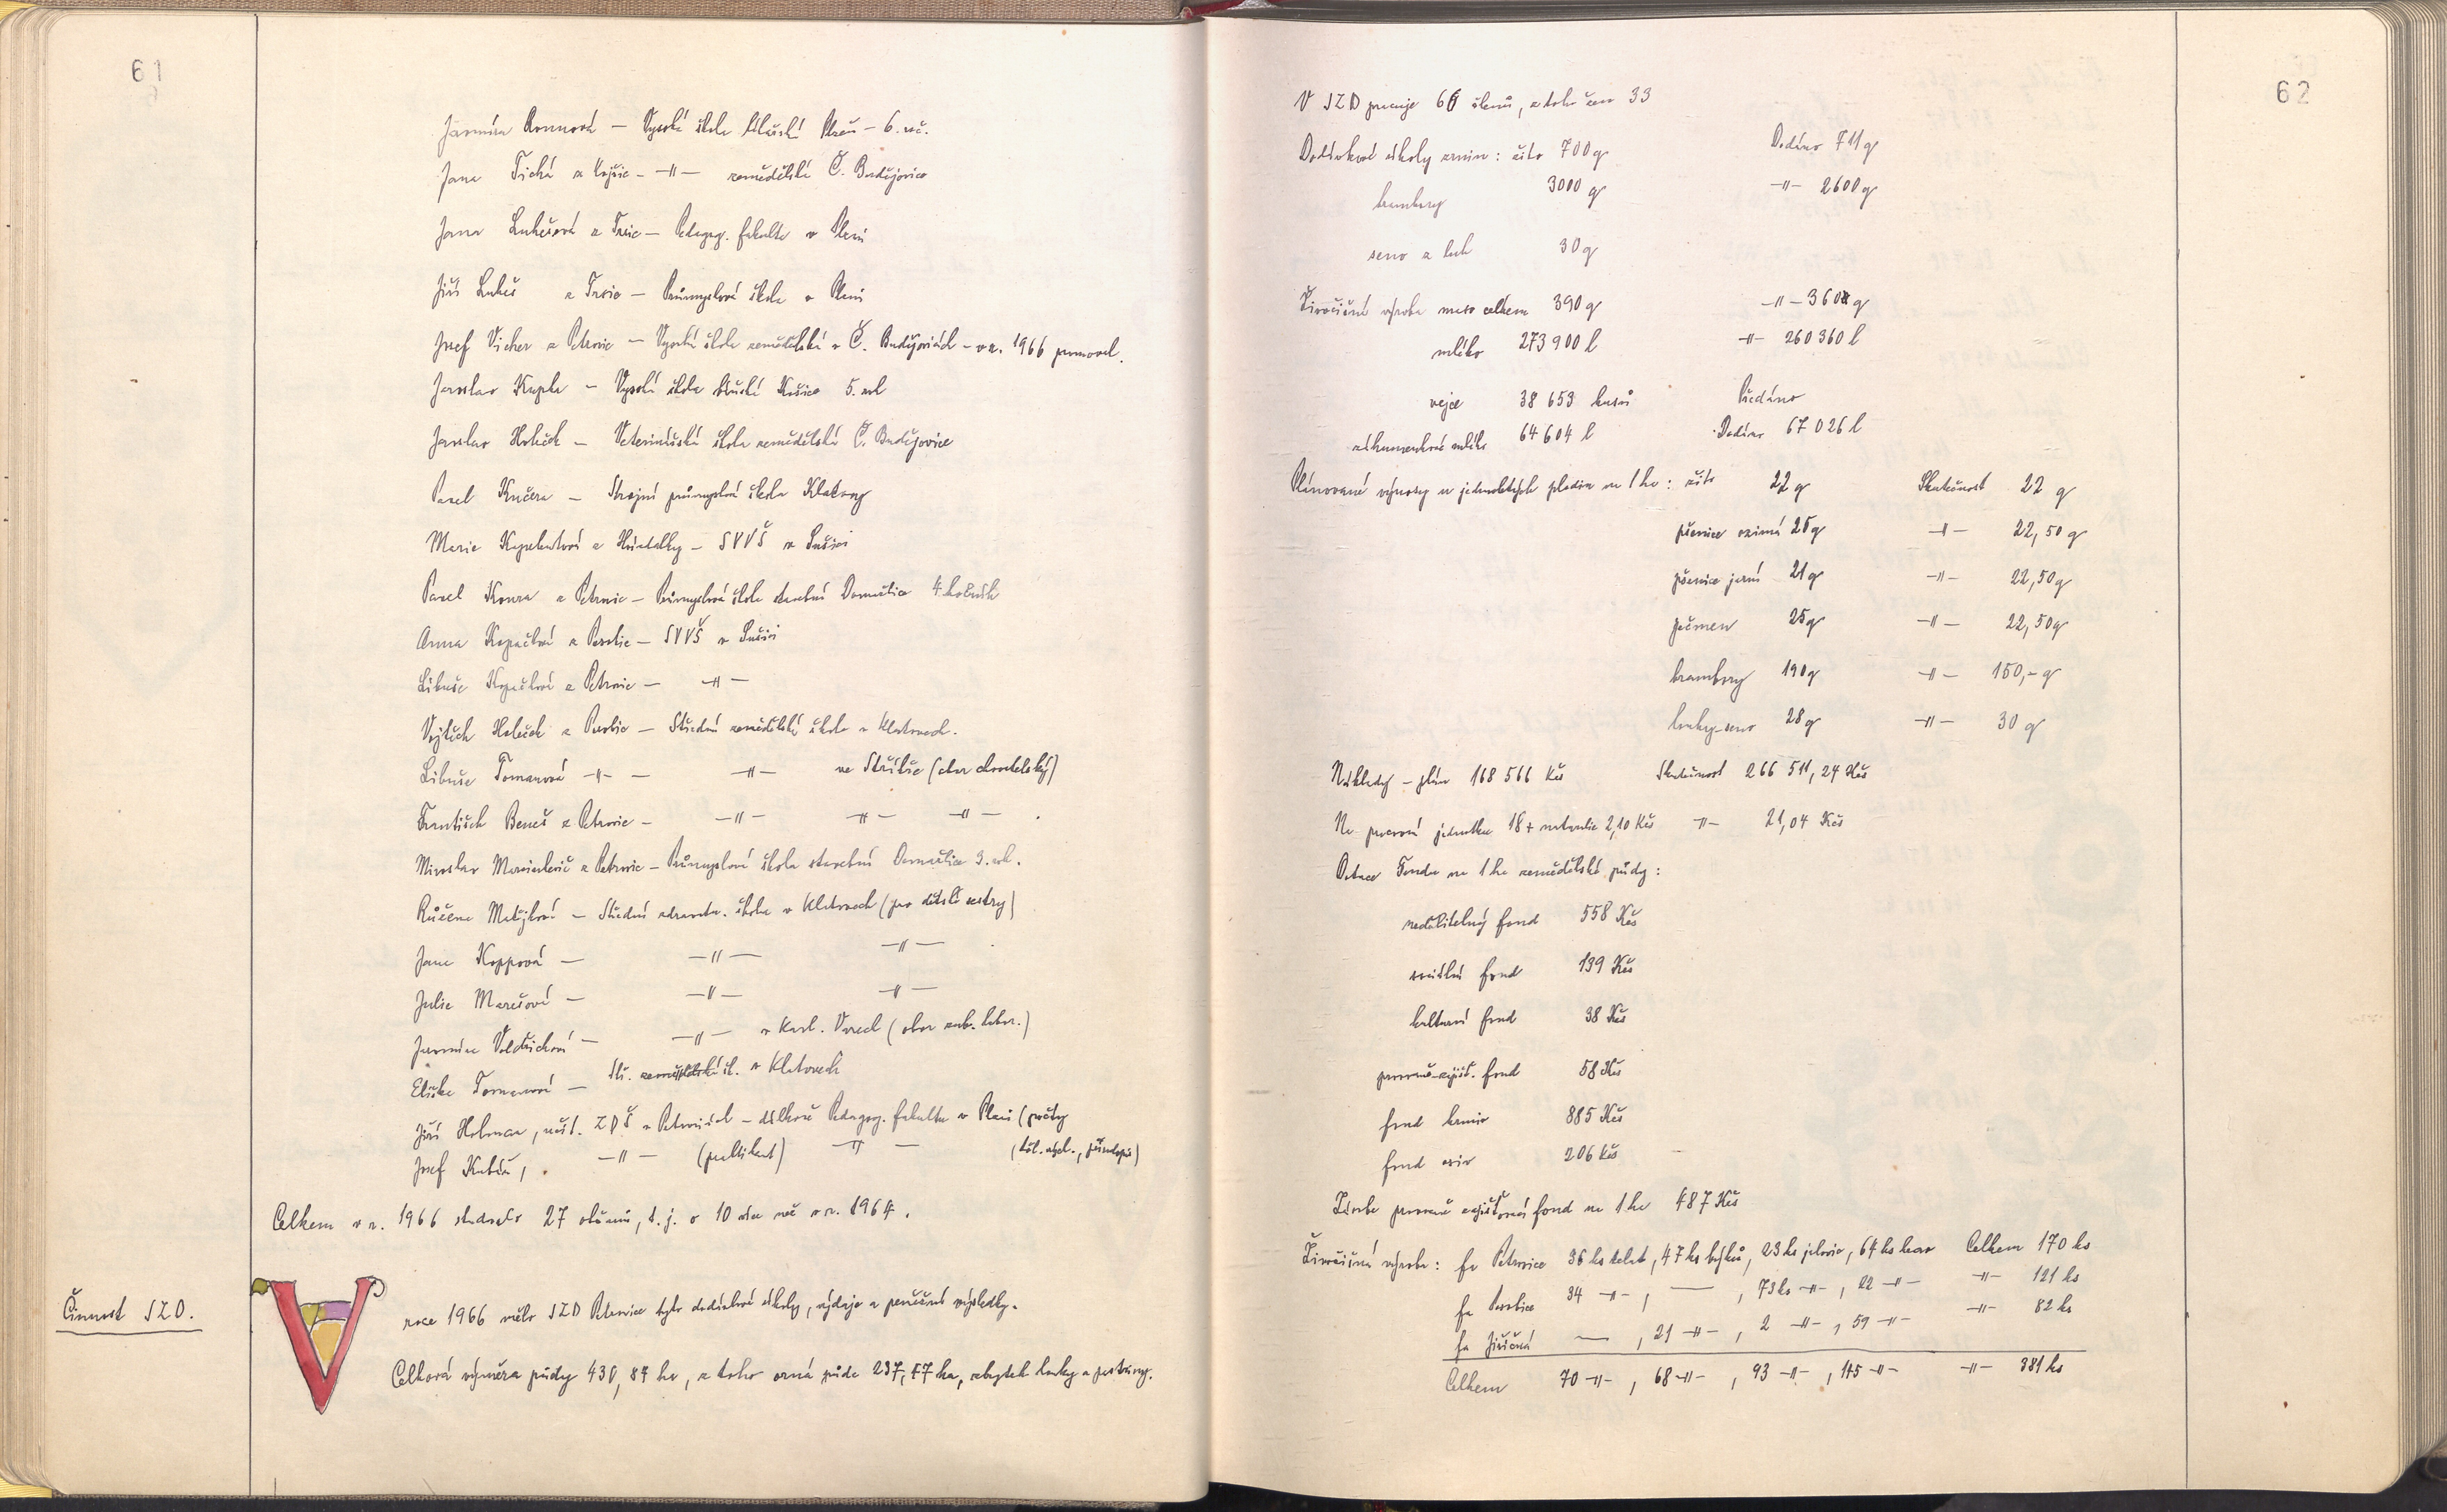 61
Jarmila Rounová — Vysoká škola lékařská Plzeň – 6. roč.
Jana Tichá z Kojšic – –"– zemědělská Č. Budějovice
Jana Lukešová z Trsic – Pedagog. fakulta v Plzni
Jiří Lukeš z Trsic – Průmyslová škola v Plzni
Josef Vicher z Petrovic – Vysoká škola zemědělská v Č. Budějovicích – v r. 1966 promoval.
Jaroslav Kupka – Vysoká škola Košice 5. roč
Jaroslav Holeček – Veterinářská škola zemědělská Č. Budějovice
Pavel Kučera – Strojní průmyslová škola Klatovy
Marie – SVVŠ v Sušici
Pavel z Petrovic – Průmyslová škola stavební Domažlice 4. ročník
Anna Kopačková z – SVVŠ v Sušici
Libuše Kopačková z Petrovic – –"–
Vojtěch Holeček z – Střední zemědělská škola v Klatovech.
Libuše Tomanová –"– – –"– ve Stříbře (obor chovatelský)
František Beneš z Petrovic – –"– –"– –"–
Miroslav z Petrovic – Průmyslová škola stavební Domažlice 3. roč.
Růžena Matějková – Střední zdravotn. škola v Klatovech (pro dětské sestry)
Jana Koppová – –"– –"–
Julie Marešová – –"– –"–
Jarmila Voldřichová – –"– v Karl. Varech (obor zub. labor.)
Eliška Tomanová – Stř. zemědělská šk. v Klatovech
Jiří, učit. ZDŠ v Petrovicích – dálkově Pedagog. fakulta v Plzni (počty
Josef Kubát, –"– –"– (těl. vých., přírodopis)
Celkem v r. 1966 studovalo 27 občanů, t. j. o 10 více než v r. 1964.
Činnost JZD.
V roce 1966 mělo JZD Petrovice tyto dodávkové úkoly, výdaje a peněžní výsledky.
Celková výměra půdy 430,84 ha, z toho orná půda 237,57 ha, zbytek louky a pastviny.
62
V JZD pracuje 66 členů, z toho žen 33
Dodávkové úkoly zrnin: žito 700 q Dodáno 711 q
brambory 3000 q –"– 2600 q
seno z luk 30 q
Živočišná výroba maso celkem 390 q –"– 360 q
mléko 273 900 l –"– 260 360 l
vejce 38 653 kusů Předáno
záhumenkové mléko 64 604 l Dodáno 67 026 l
Plánované výnosy u jednotlivých plodin na 1 ha: žito 22 q Skutečnost 22 q
pšenice ozimá 25 q –"– 22,50 q
pšenice jarní 21 q –"– 22,50 q
ječmen 25 q –"– 22,50 q
brambory 190 q –"– 150,– q
louky – seno 28 q –"– 30 q
Náklady – plán 168 566 Kčs Skutečnost 266 511,24 Kčs
Na pracovní jednotku 18 + naturálie 2,10 Kčs –"– 21,04 Kčs
Dotace Fondu na 1 ha zemědělské půdy:
nedělitelný fond 558 Kčs
sociální fond 139 Kčs
kulturní fond 38 Kčs
provozně-zajišť. fond 58 Kčs
fond krmiv 885 Kčs
fond osiv 206 Kčs
Zásoba provozně zajišťovací fond na 1 ha 487 Kčs
Živočišná výroba: fa Petrovice 36 ks telat, 47 ks býků, 23 ks jalovic, 64 ks krav Celkem 170 ks
fa 34 –"–, —, 73 ks –"–, 22 –"– –"– 121 ks
fa Jiřičná —, 21 –"–, 2 –"–, 59 –"– –"– 82 ks
Celkem 70 –"–, 68 –"–, 93 –"–, 145 –"– –"– 381 ks